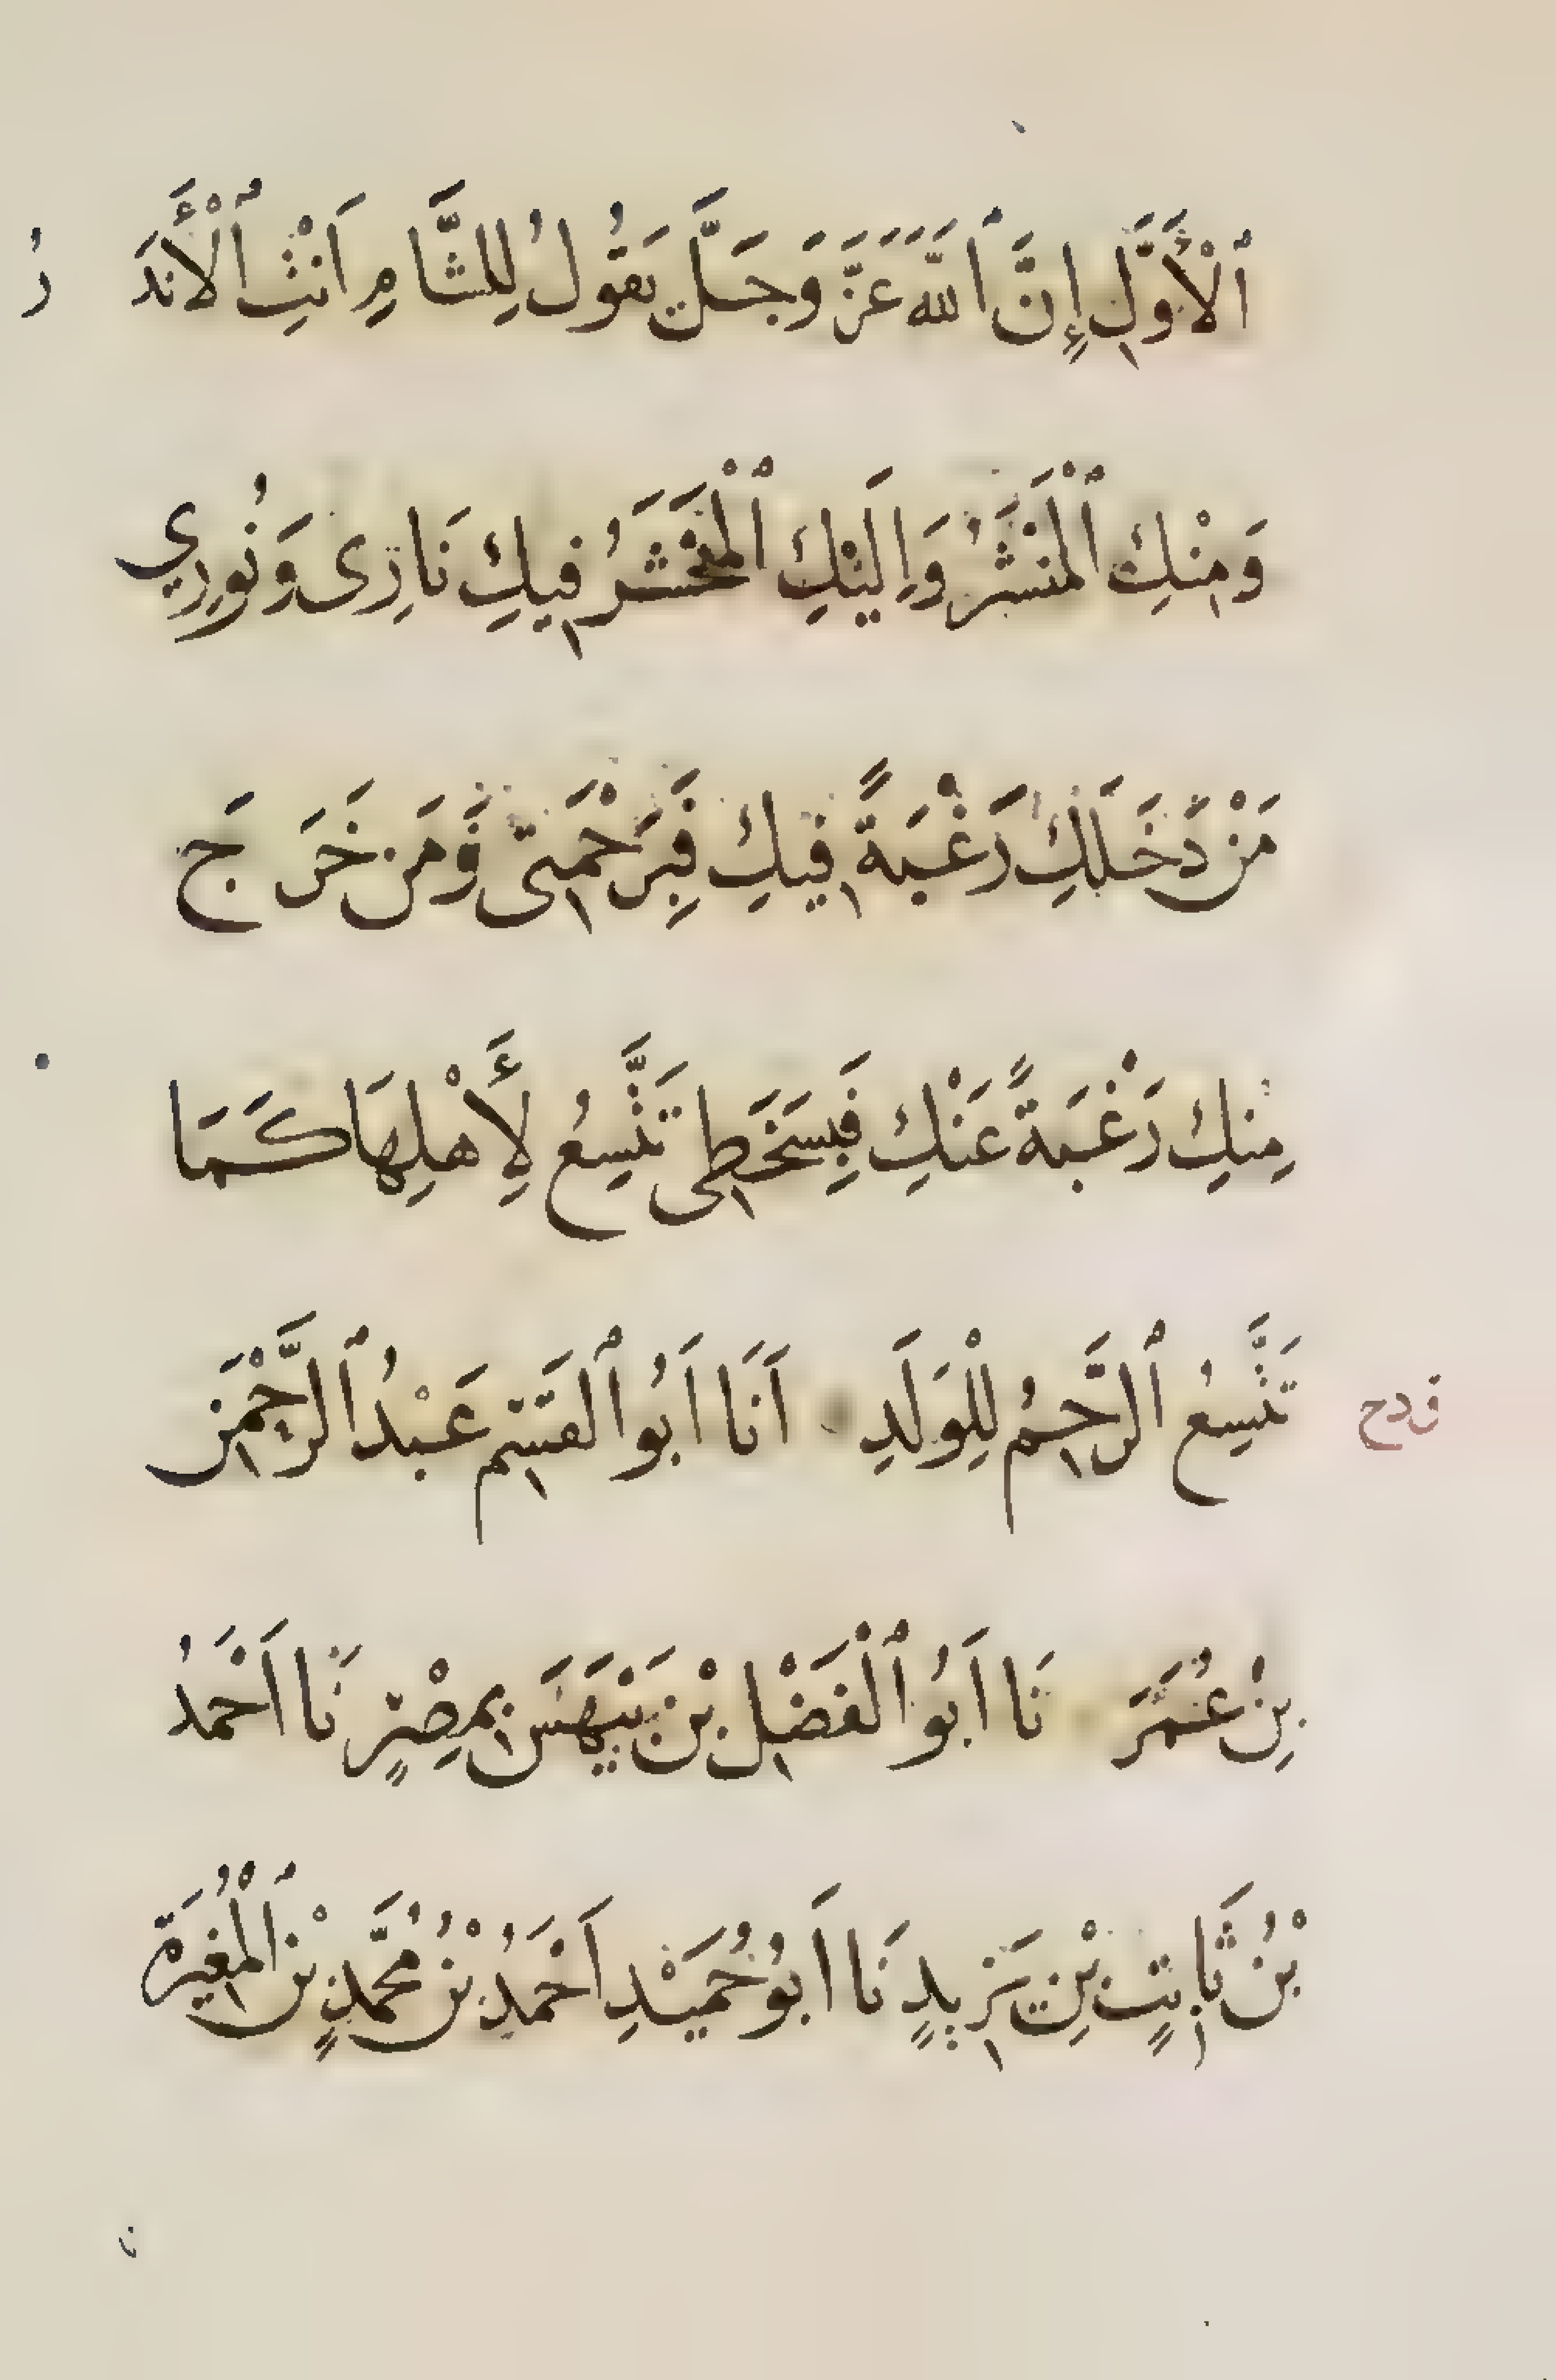 ٱلْأَوَّلِ إِنَّ ٱللَّهَ عَزَّ وَجَلَّ يَقُولُ لِلشَّامِ اَنْتِ ٱلْأَنْدَرُ
وَمِنْكِ ٱلْمَنْشَرُ وَاِلَيْكِ ٱلْمَحْشَرُ فِيكِ نَارِى وَنُورِي
مَنْ دَخَلَكِ رَغْبَةً فِيكِ فَبِرَحْمَتِى وَمَن خَرَجَ
مِنكِ رَغْبَةً عَنْكِ فَبِسَخَطِى تَتَّسِعُ لِأَهْلِهَا كَمَا
تَتَّسِعُ ٱلرَّحِمُ لِلْوَلَدِ اَنَا اَبُو ٱلقَسِم عَبْدُ ٱلرَّحْمَن
بْنِ عُمَرَ نَا اَبُو ٱلْفَضْلِ بْنِ بَيْهَسَ بِمِصْرٍ نَا اَحْمَدُ
بْنُ ثَابِتٍ بْنِ يَزِيدٍ نَا اَبُو حُمَيْدِ اَحْمَدُ بْنُ مُحَمَّدٍ بْنِ ٱلْمُغِيرَة